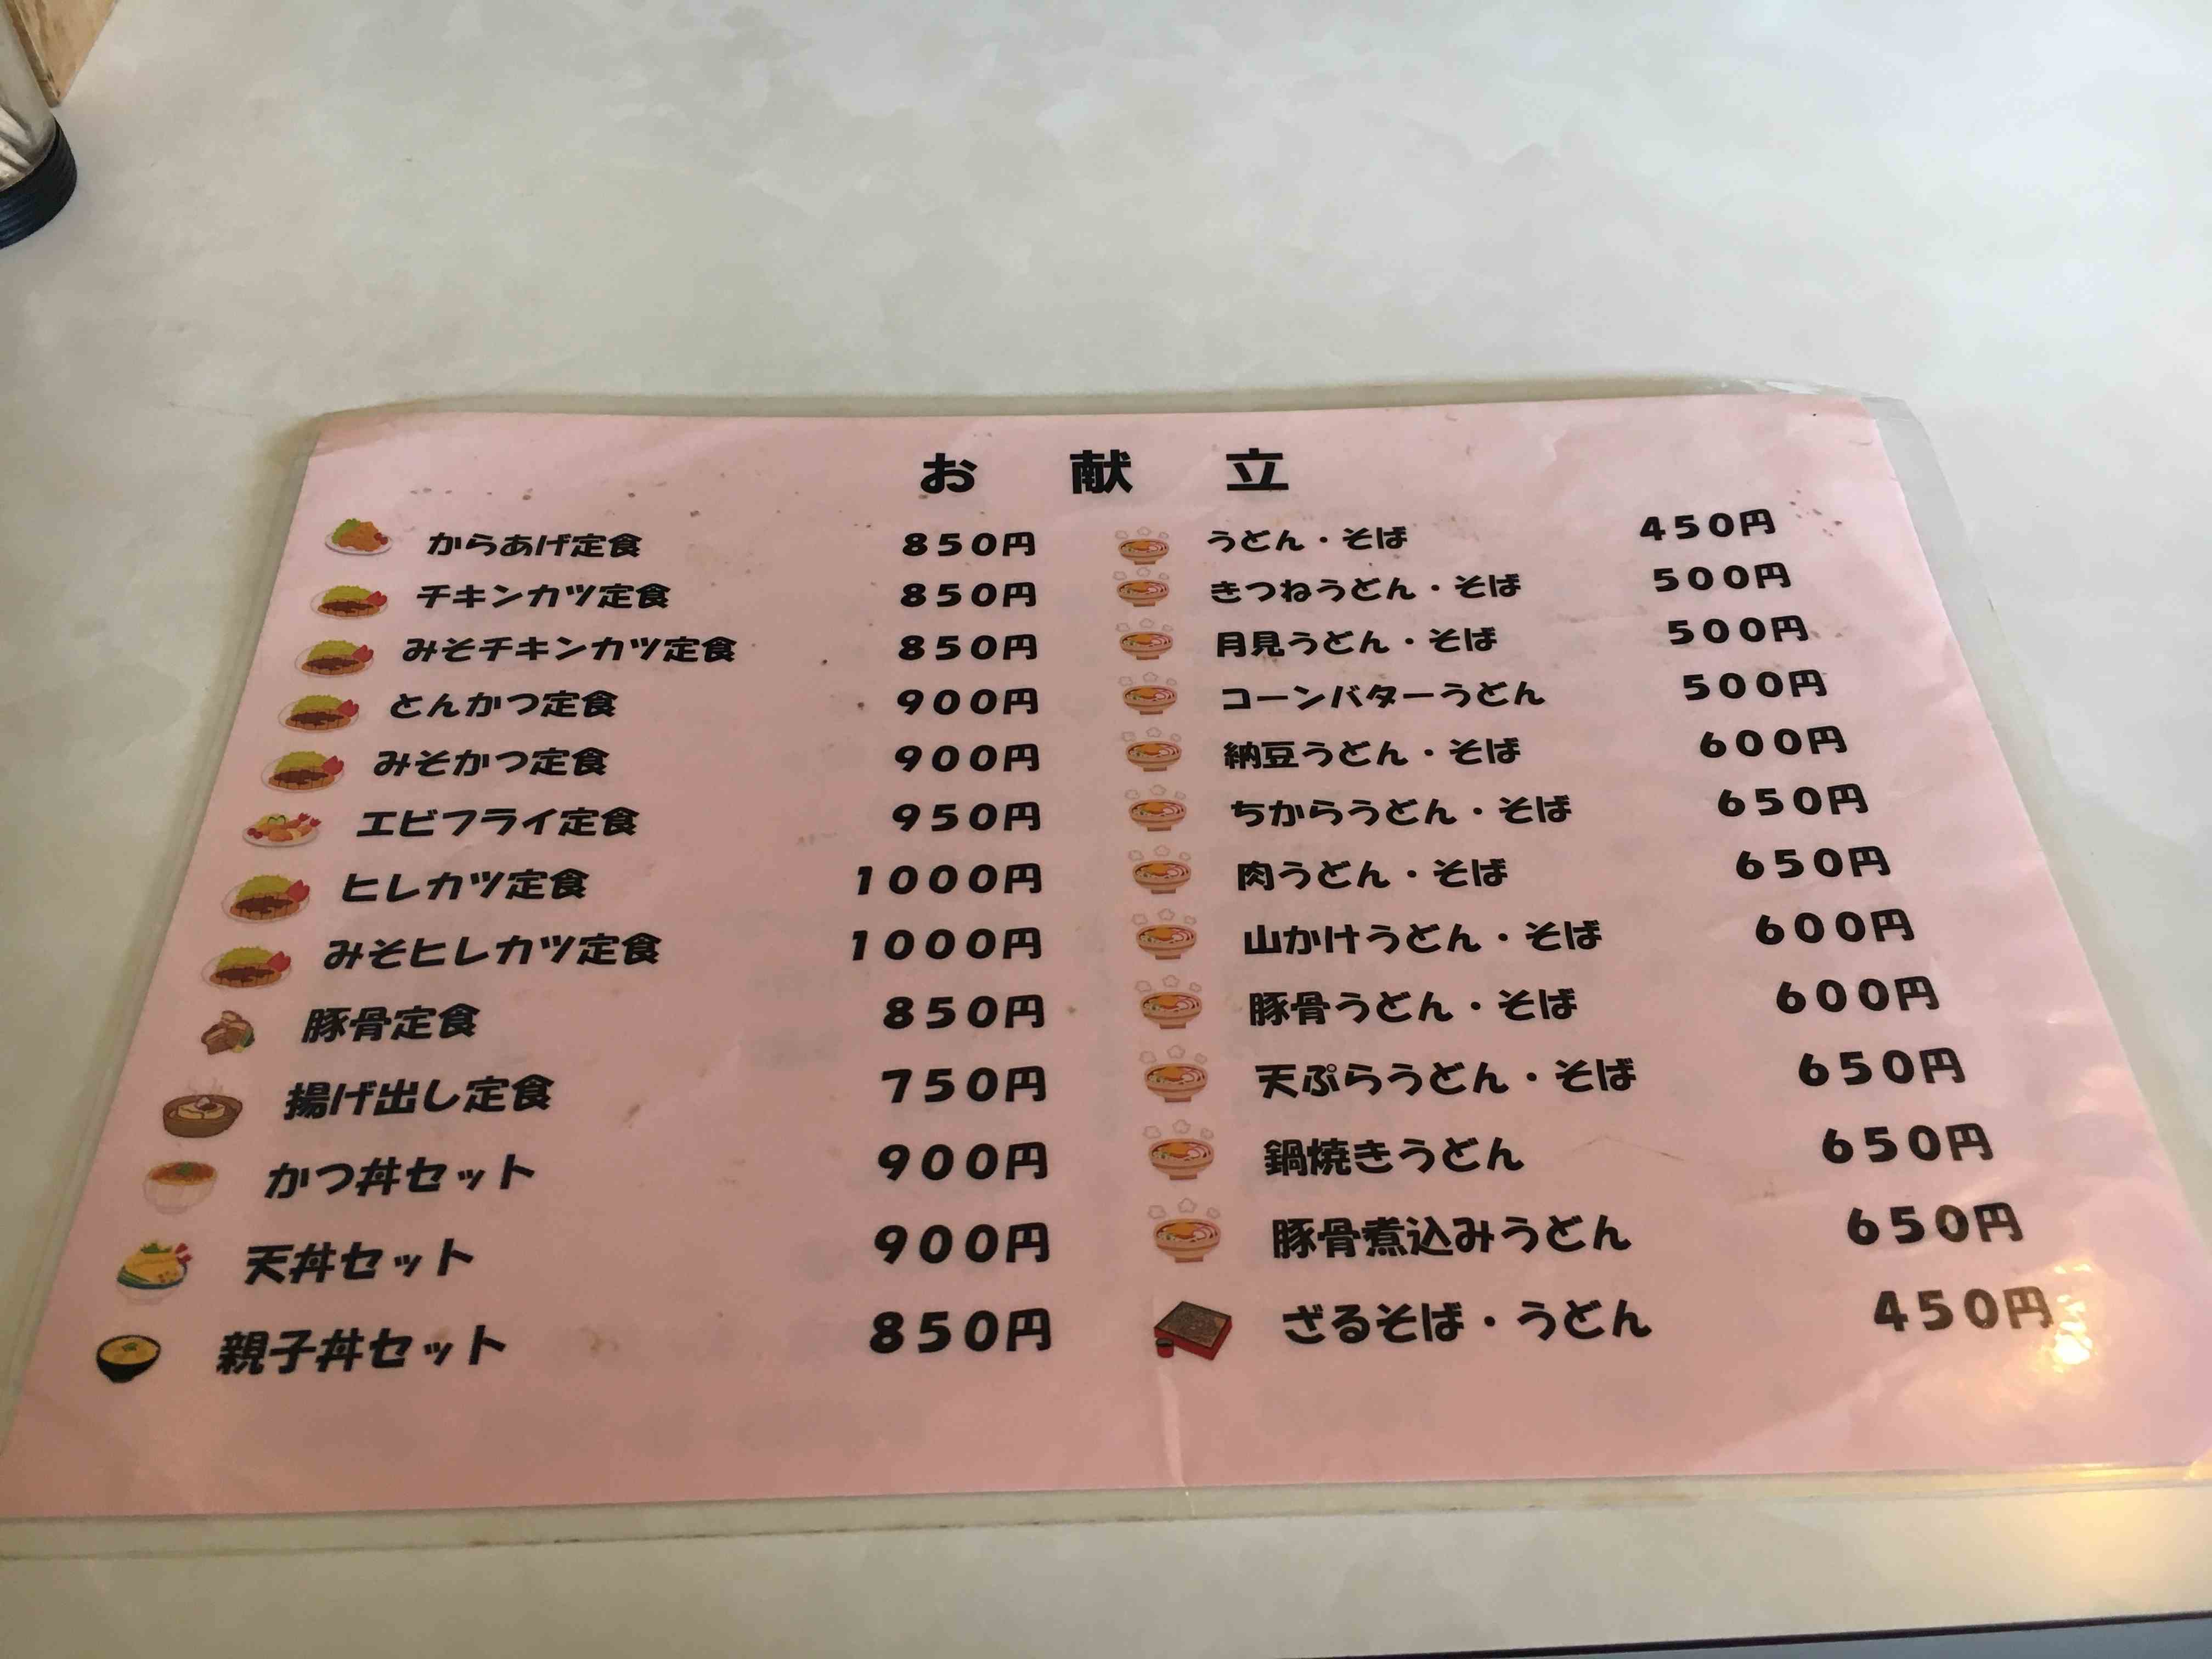 お献立
からあげ定食 850円
チキンカツ定食 850円
みそチキンカツ定食 850円
とんかつ定食 900円
みそかつ定食 900円
エビフライ定食 950円
ヒレカツ定食 1000円
みそヒレカツ定食 1000円
豚骨定食 850円
揚げ出し定食 750円
かつ丼セット 900円
天丼セット 900円
親子丼セット 850円
うどん・そば 450円
きつねうどん・そば 500円
月見うどん・そば 500円
コーンバターうどん 500円
納豆うどん・そば 600円
ちからうどん・そば 650円
肉うどん・そば 650円
山かけうどん・そば 600円
豚骨うどん・そば 600円
天ぷらうどん・そば 650円
鍋焼きうどん 650円
豚骨煮込みうどん 650円
ざるそば・うどん 450円